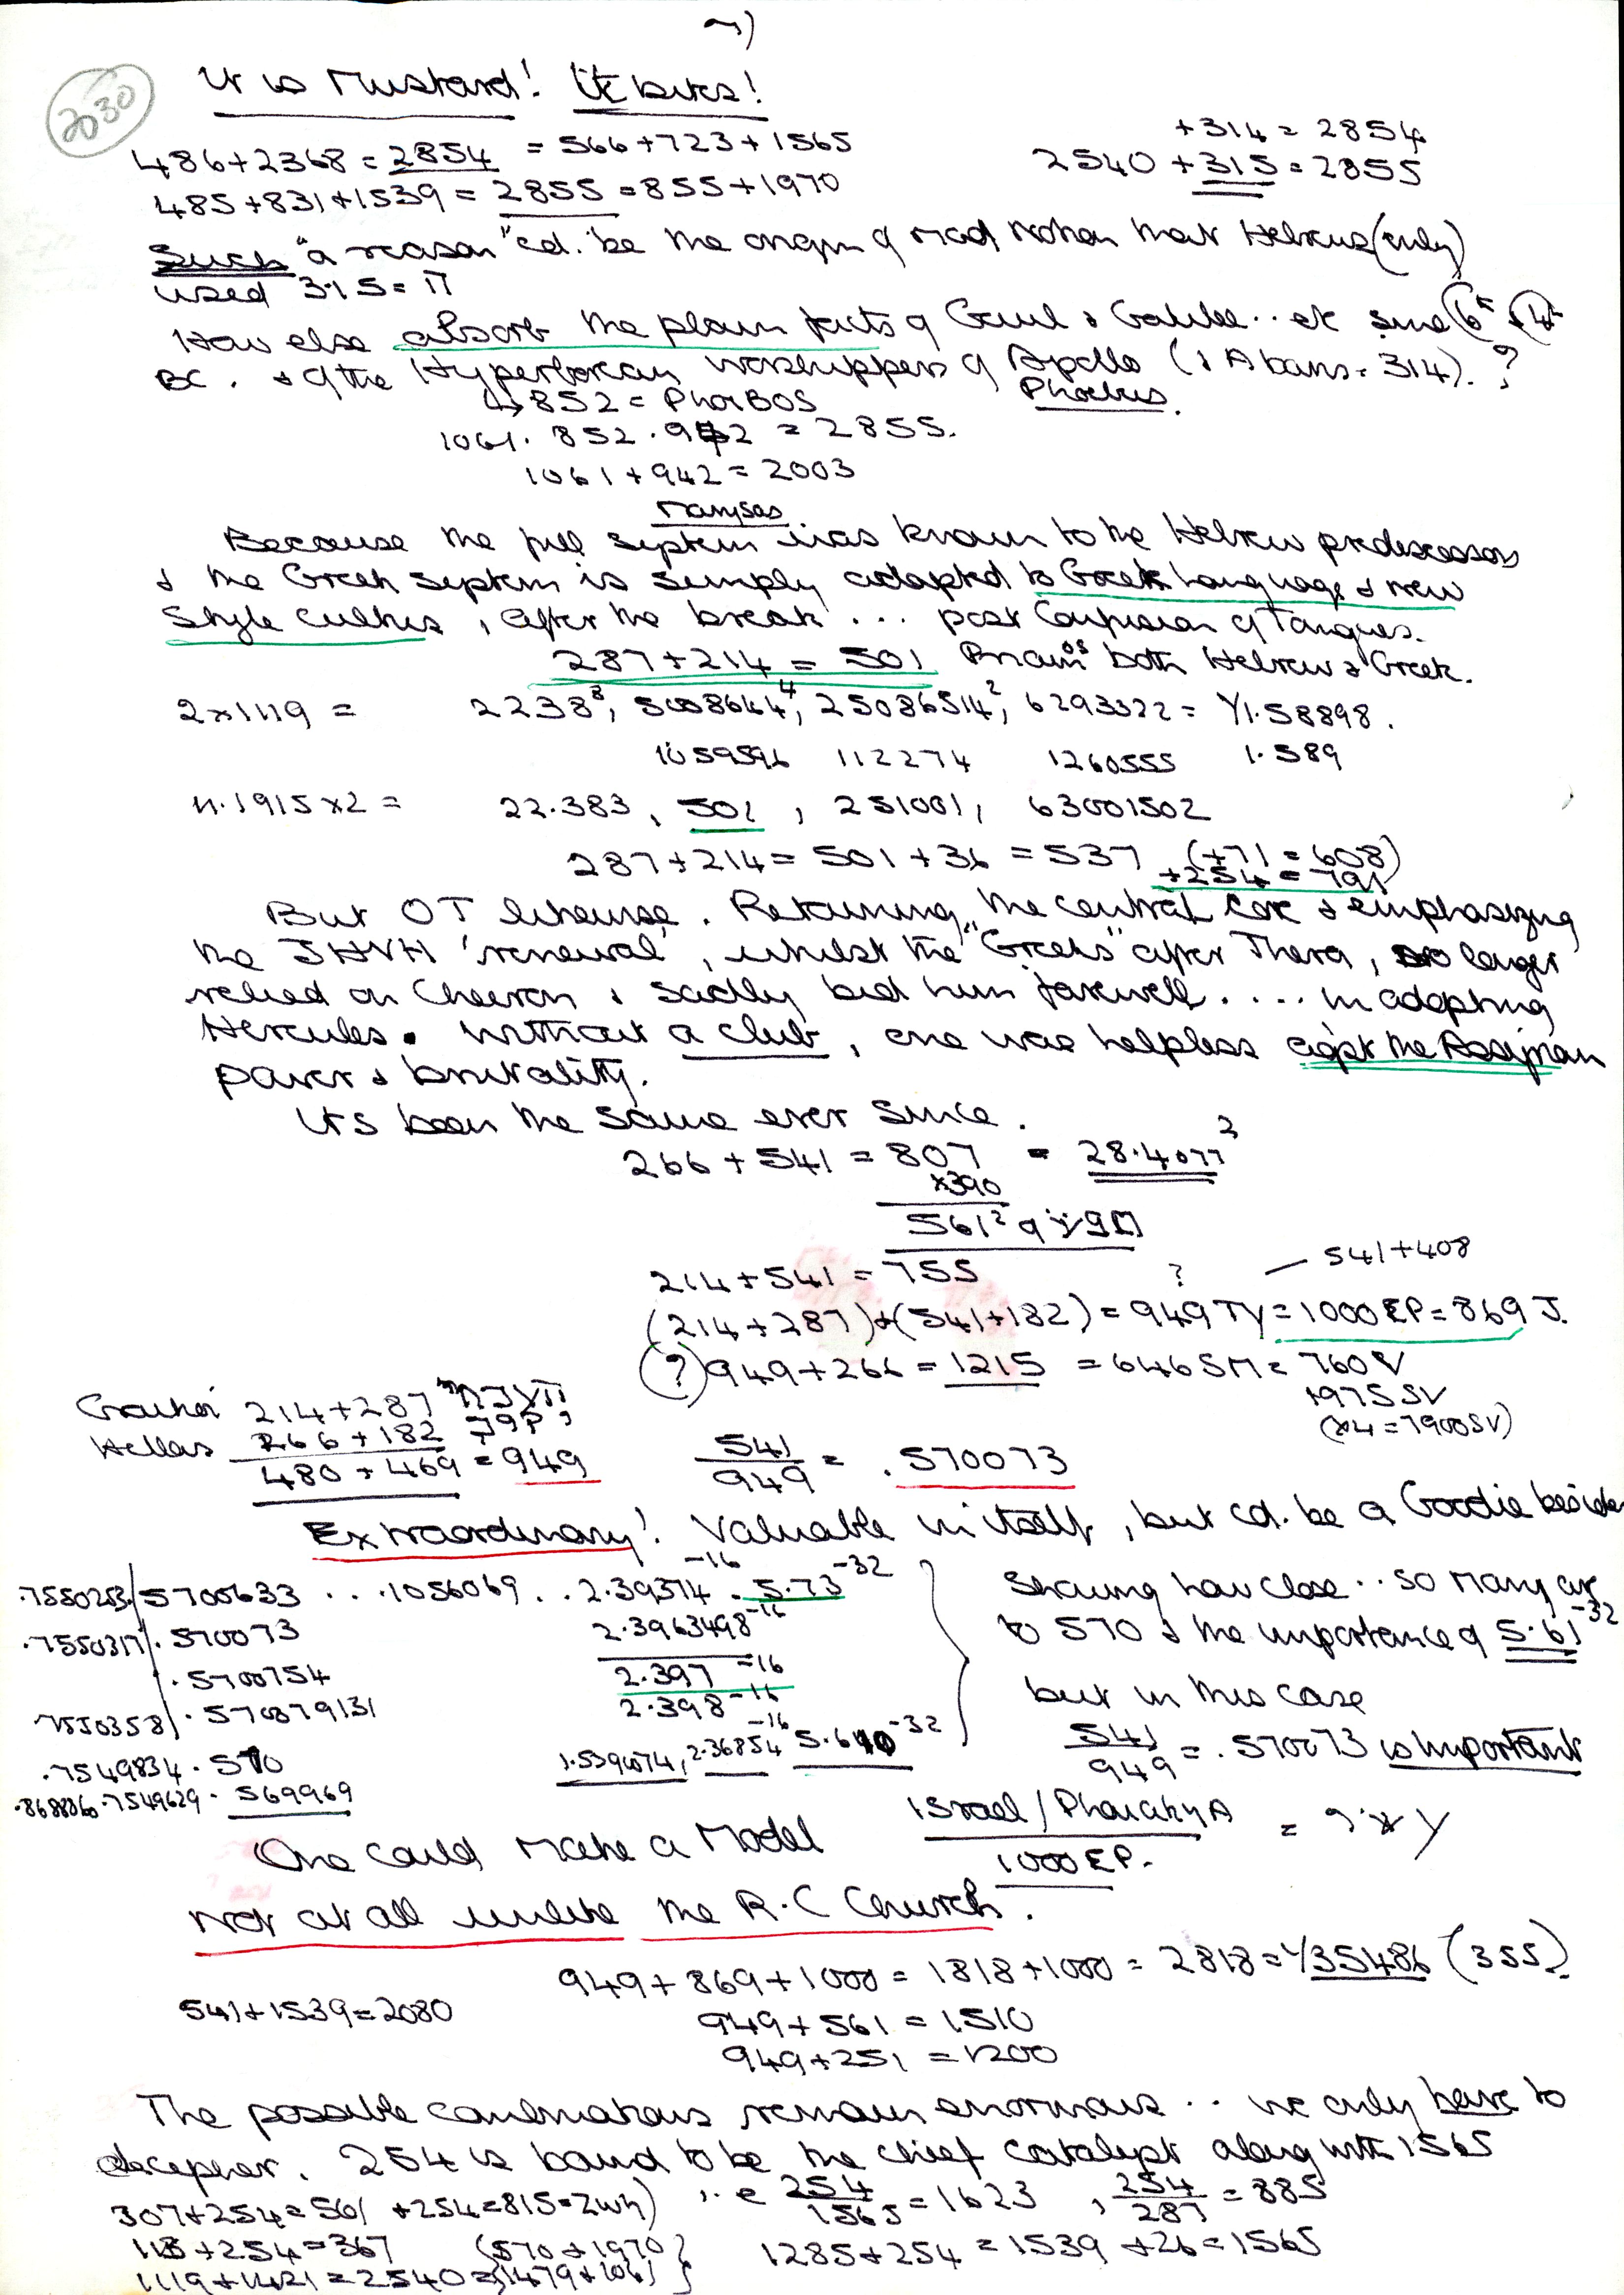 2030
It is Mustard! It bites!
486+2368 = 2854 = 566+723+1565
+314 = 2854
485+831+1539 = 2855 = 855+1970
2540 +315 = 2855
Such "a reason" cd. be the origin of mad notion that Hebrews (only)
used 3.15 = π
How else absorb the plain facts of Gaul & Galilee .. etc since 6th & 4th
BC. & of the Hyperborean worshippers of Apollo (& Abaris = 314). ?
852 = PhoiBOS
Phoebus.
1061. 852. 942 = 2855.
1061+942 = 2003
Because the full system was known to the Hebrew predecessors
& the Greek system is simply adapted to Greek language & new
Style cultus, after the break ... post Confusion of Tongues.
287+214 = 501 both Hebrew & Greek.
2x1119 = 2238³, 5008644⁴, 25086514², 6293322 = Y1.58898.
1059596 112274 1260555 1.589
11.1915x2 = 22.383, 501, 251001, 63001502
287+214 = 501+36 = 537 (+71 = 608)
+254 = 791
But OT likewise. Retaining the central core & emphasizing
the JHVH 'renewal', whilst the "Greeks" after Thera, no longer
relied on Cheiron & sadly bid him farewell .... in adopting
Hercules. Without a club, one was helpless agst the Assyrian
power & brutality.
It's been the same ever since.
266+541 = 807 = 28.4077²
x390
561²
214+541 = 755
? — 541+408
(214+287)+(541+182) = 949TY = 1000EP = 869 J.
(?) 949+266 = 1215 = 646SM = 760V
1975SV
(x4 = 7900SV)
Graikoi 214+287
Hellas 266+182
480+469 = 949
541/949 = .570073
Extraordinary! Valuable in itself, but cd. be a Goodie besides
.7550253 / 5700633 .. .1056069 .. 2.39374-16 . 5.73-32
.7550317 / .570073 2.3963498-16
.5700754 2.397-16
.7550358 / .570079131 2.398-16
.7549834 . 570 1.539074, 2.36854-16 5.610-32
.868886 .7549629 . 569969
Showing how close .. so many are
to 570 & the importance of 5.61-32
but in this case
541/949 = .570073 is important
One could make a Model
Israel / PharakyA
1000EP.
Not at all unlike the R.C Church.
949+869+1000 = 1818+1000 = 2818 = Y35486 (355).
541+1539=2080
949+561 = 1510
949+251 = 1200
The possible combinations remain enormous .. we only have to
decepher. 254 is bound to be the chief catalyst along with 1565
307+254=561 +254=815=2wh) i.e 254/1565 = 1623 , 254/287 = 885
113+254=367 (570+1970)
1285+254 = 1539 +26 = 1565
1119+1421 = 2540 = (1479+1061)